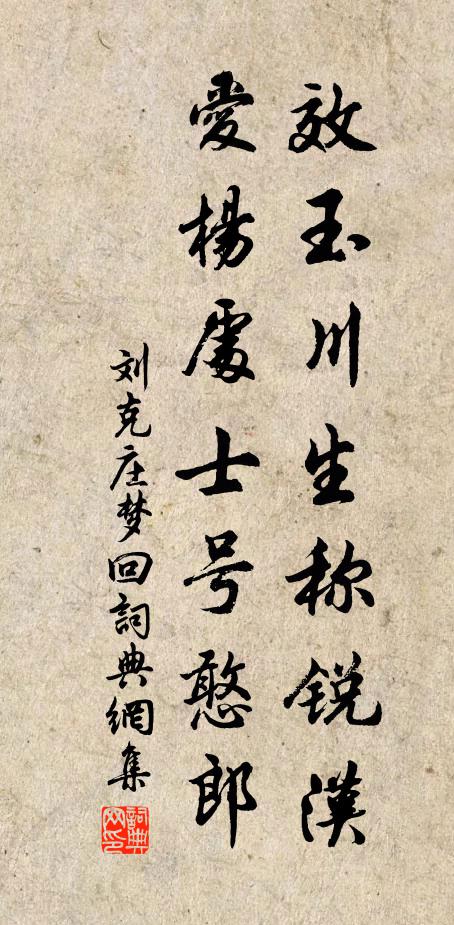 效玉川生称锐漢
愛楊處士号憨郎
刘克庄梦回詞典網集
詞典网印